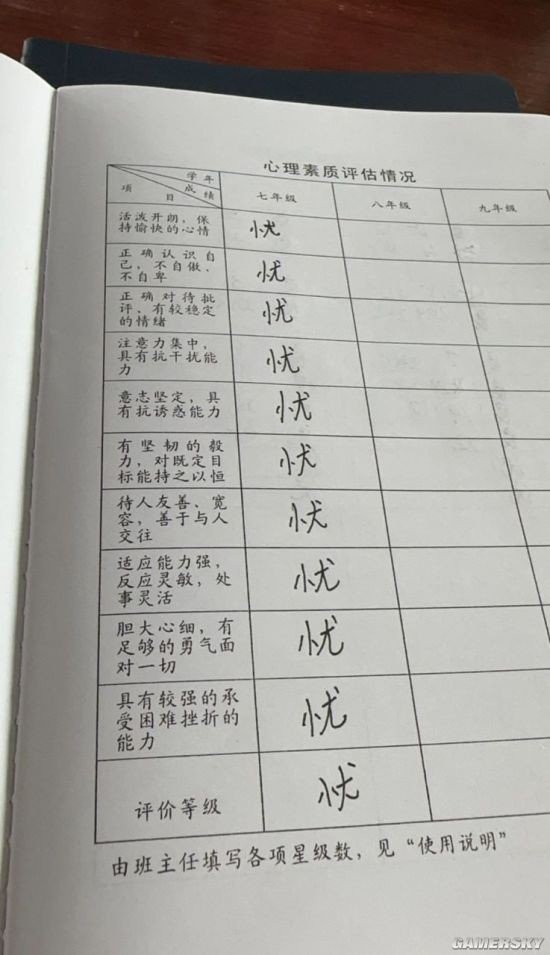 心理素质评估情况
学年
成绩
项目
七年级
八年级
九年级
活泼开朗，保
持愉快的心情
忧
正确认识自
己，不自傲、
不自卑
忧
正确对待批
评、有较稳定
的情绪
忧
注意力集中，
具有抗干扰能
力
忧
意志坚定，具
有抗诱惑能力
忧
有坚韧的毅
力，对既定目
标能持之以恒
忧
待人友善、宽
容，善于与人
交往
忧
适应能力强，
反应灵敏，处
事灵活
忧
胆大心细，有
足够的勇气面
对一切
忧
具有较强的承
受困难挫折的
能力
忧
评价等级
忧
由班主任填写各项星级数，见“使用说明”
GAMERSKY